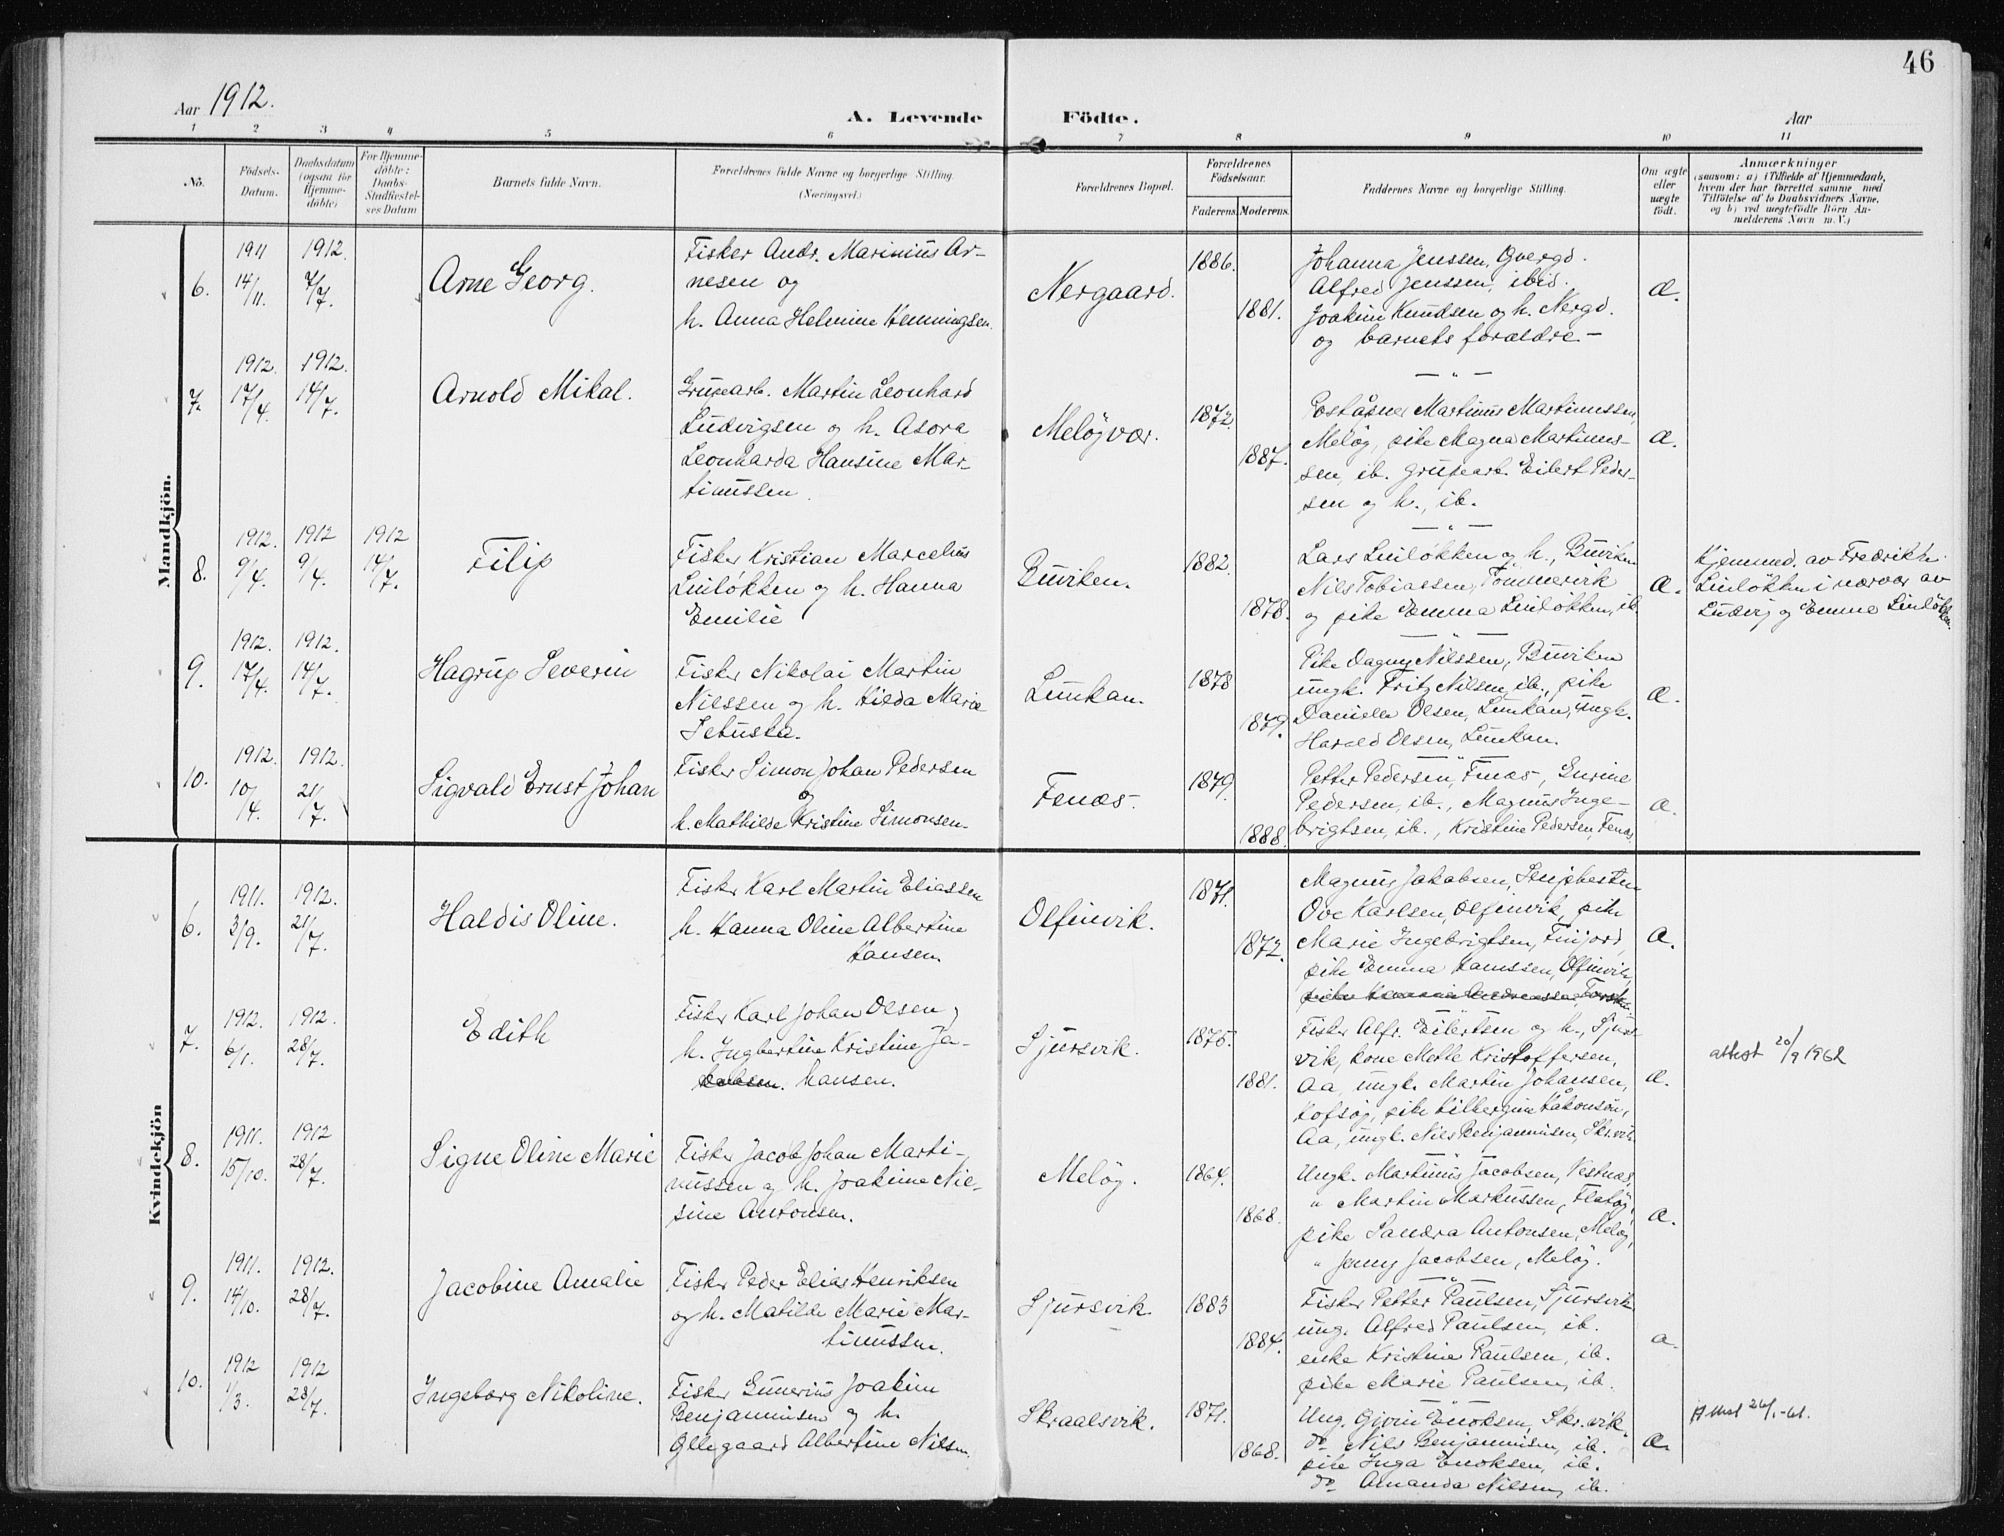 46
Aar 1912.
A. Levende Födte.
Aar
1 2 3 4 5 6 7 8 9 10 11
No.
Födsels-
Datum.
Daabsdatum
(ogsaa for
Hjemme-
döbte)
For Hjemme-
döbte:
Daabs-
Stadfæstel-
ses Datum
Barnets fulde Navn.
Forældrenes fulde Navne og borgerlige Stilling.
(Næringsvei.)
Forældrenes Bopæl.
Forældrenes
Födselsaar.
Faderens. Moderens.
Faddernes Navne og borgerlige Stilling.
Om ægte
eller
uægte
født.
Anmærkninger
(saasom: a) i Tilfælde af Hjemmedaab,
hvem der har forrettet samme, med
Tilföielse af to Daabsvidners Navne,
og b) ved uægtefödte Börn An-
melderens Navn m. V.)
Mandkjön.
6.
1911
14/11.
1912.
7/7.
Arne Georg.
Fisker Andr. Marinius Ar-
nesen og
h. Anna Helmine Henningsen.
Nergaard.
1886.
1881.
Johanna Jenssen, Øvergd.
Alfred Jenssen, ibid.
Joakim Knudsen og h. Nergd.
og barnets forældre -
æ.
7.
1912.
17/4.
1912.
14/7.
Arnold Mikal.
Grubearb. Martin Leonhard
Ludvigsen og h. Asora
Leonharda Hansine Mar-
tinussen.
Meløyvær.
1872.
1887.
Poståpner Martinus Martinussen,
Meløy, pike Magna Martinus-
sen, ib. grubearb. Eilert Peder-
sen og h., ib.
æ.
8.
1912.
9/4.
1912
9/4.
1912
14/7.
Filip
Fisker Kristian Marcelius
Linløkken og h. Hanna
Emilie
Buviken.
1882.
1878.
Lars Linløkken og h., Buviken
Nils Tobiassen, Tømmervik
og pike Emma Linløkken, ib.
æ.
Hjemmed. av Fredrikke
Linløkken i nærvær av
Ludvig og Emma Linløkken.
9.
1912.
17/4.
1912.
14/7.
Hagrup Severin
Fisker Nikolai Martin
Nilssen og h. Hilda Marie
Lunkan.
1878
1879.
Pike Dagny Nilssen, Buviken
ungk. Fritz Nilsen, ib., pike
Daniella Olsen, Lunkan, ungk.
Harald Olsen, Lunkan.
æ.
10.
1912.
10/4.
1912.
21/7.
Sigvald Ernst Johan
Fisker Simon Johan Pedersen
og
h. Mathilde Kristine Simonsen.
Fenæs.
1879.
1888.
Petter Pedersen, Fenæs, Gurine
Pedersen, ib., Magnus Inge-
brigtsen, ib., Kristine Pedersen, Fenæs
æ.
Kvindekjön
6.
1911.
3/9.
1912.
21/7.
Haldis Oline.
Fisker Karl Martin Eliassen
h. Hanna Oline Albertine
Hansen.
Olfinvik.
1871.
1872.
Magnus Jakobsen,
Ove Karlsen, Olfinvik, pike
Marie Ingebrigtsen, Finjord,
pike Emma Hanssen, Olfinvik,
æ.
7.
1912.
6/1.
1912.
28/7.
Edith
Fisker Karl Johan Olsen og
h. Ingbertine Kristine Ja-
Hansen.
Sjursvik.
1875.
1881.
Fisker Alfr. Eilertsen og h., Sjurs-
vik, kone Mette Kristoffersen,
Aa, ungk. Martin Johansen,
Kofsøy, pike Hilbergine Håkonsen,
Aa, ungk. Nils Benjaminsen, Skr.vik.
æ.
attest 20/9 1962
8.
1911.
15/10.
1912
28/7.
Signe Oline Marie
Fisker Jacob Johan Marti-
nussen og h. Joakime Nic-
sine Antonsen.
Meløy.
1864.
1868.
Ungk. Martinus Jacobsen, Vestnæs,
" Martin Markussen, Flatøy,
pike Sandra Antonsen, Meløy,
" Jenny Jacobsen, Meløy.
æ.
9.
1911.
14/10.
1912.
28/7.
Jacobine Amalie
Fisker Peder Elias Henriksen
og h. Matilde Marie Mar-
tinussen.
Sjursvik.
1883
1884.
Fisker Petter Paulsen, Sjursvik
ung. Alfred Paulsen, ib.
enke Kristine Paulsen, ib.
pike Marie Paulsen, ib.
æ.
10.
1912
1/3.
1912
28/7.
Ingeborg Nikoline.
Fisker Gunerius Joakim
Benjaminsen og h.
Øllegaard Albertine Nilsen.
Skraalsvik.
1871.
1868.
Ung. Gjerin Enoksen, Skr.vik
do Nils Benjaminsen, ib.
pike Inga Enoksen, ib.
do Amanda Nilsen, ib.
æ.
Attest 26/1-61.